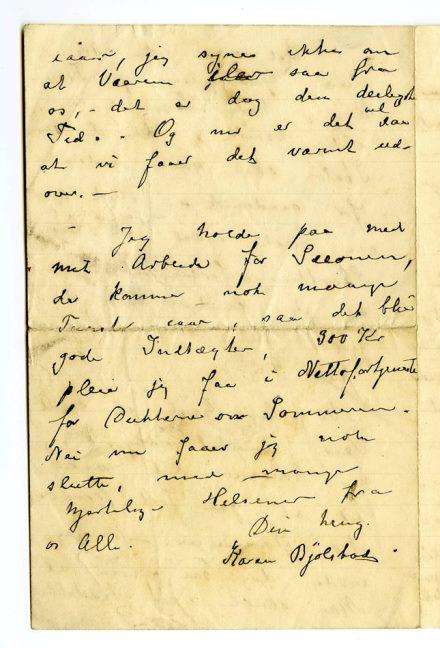 iaar, jeg synes ikke om
at Vaaren saa fra
os, - det er dog den deiligste
Tid. - Og nu er det vel saa
at vi faaer det varmt ud-
over. -
- Jeg holde paa med
mit Arbeide for Sæsonen,
der komme nok mange
Turist iaar, saa det blir
gode Indtægter, 300 Kr
pleie jeg faa i Nettofortjeneste
for Dukkerne om Sommeren.
Nei nu faaer jeg nok
slutte, med mange
hjertelig Helsener fra
Din heng.
os Alle.
Karen Bjölstad.